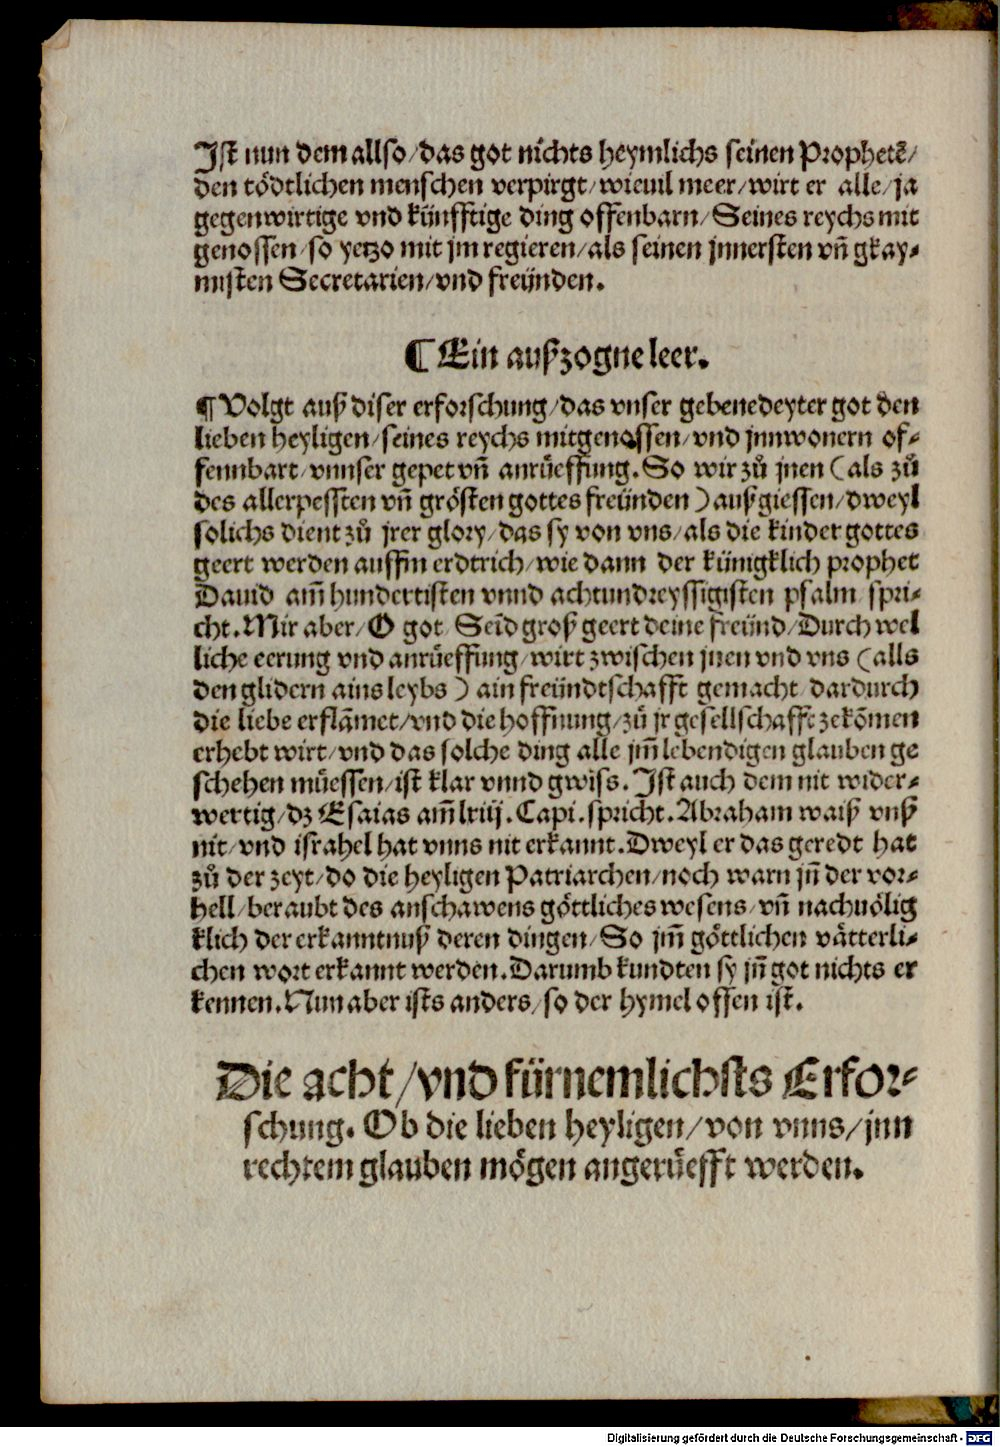 Ist nun dem allso/das got nichts heymlichs seinen Prophetē/
den tödtlichen menschen verpirgt/wieuil meer/wirt er alle/ja
gegenwirtige vnd künfftige ding offenbarn/Seines reychs mit
genossen/so yetzo mit jm regieren/als seinen jnnersten vñ gkay-
misten Secretarien/vnd freünden.
¶ Ein außzogne leer.
¶ Volgt auß diser erforschung/das vnser gebenedeyter got den
lieben heyligen/seines reychs mitgenossen/vnd jnnwonern of-
fennbart/vnnser gepet vñ anrüeffung. So wir zů jnen (als zů
des allerpessten vñ grösten gottes freünden) außgiessen/dweyl
solichs dient zů jrer glory/das sy von vns/als die kinder gottes
geert werden auffm erdtrich/wie dann der künigklich prophet
Dauid am̃ hundertisten vnnd achtundreyssigisten psalm spri-
cht. Mir aber/O got Seīd groß geert deine freünd/Durch wel
liche eerung vnd anrüeffung/wirt zwischen jnen vnd vns (alls
den glidern ains leybs) ain freündtschafft gemacht/dardurch
die liebe erflāmet/vnd die hoffnung/zů jr gesellschafft zekōmen
erhebt wirt/vnd das solche ding alle jm̃ lebendigen glauben ge
schehen müessen/ist klar vnnd gwiss. Ist auch dem nit wider-
wertig/dz Esaias am̃ lxiij. Capi. spricht. Abraham waiß vnß
nit/vnd israhel hat vnns nit erkannt. Dweyl er das geredt hat
zů der zeyt/do die heyligen Patriarchen/noch warn jñ der vor-
hell/beraubt des anschawens göttliches wesens/vñ nachuölig
klich der erkanntnuß deren dingen/So jm̃ göttlichen vätterli-
chen wort erkannt werden. Darumb kundten sy jñ got nichts er
kennen. Nun aber ists anders/so der hymel offen ist.
Die acht/vnd fürnemlichsts Erfor-
schung. Ob die lieben heyligen/von vnns/jnn
rechtem glauben mögen angerüefft werden.
Digitalisierung gefördert durch die Deutsche Forschungsgemeinschaft - DFG